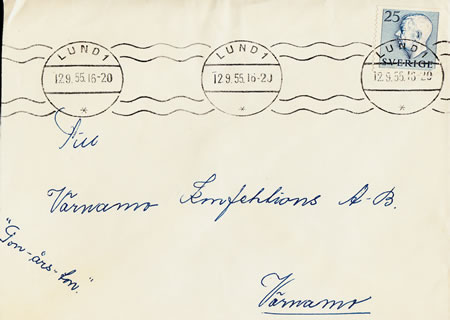 25
SVERIGE
LUND 1 LUND 1 LUND 1
12.9.55.16-20 12.9.55.16-20 12.9.55.16-20
* * *
Till
Värnamo Konfektions A-B.
"Ton-års-ton."
Värnamo